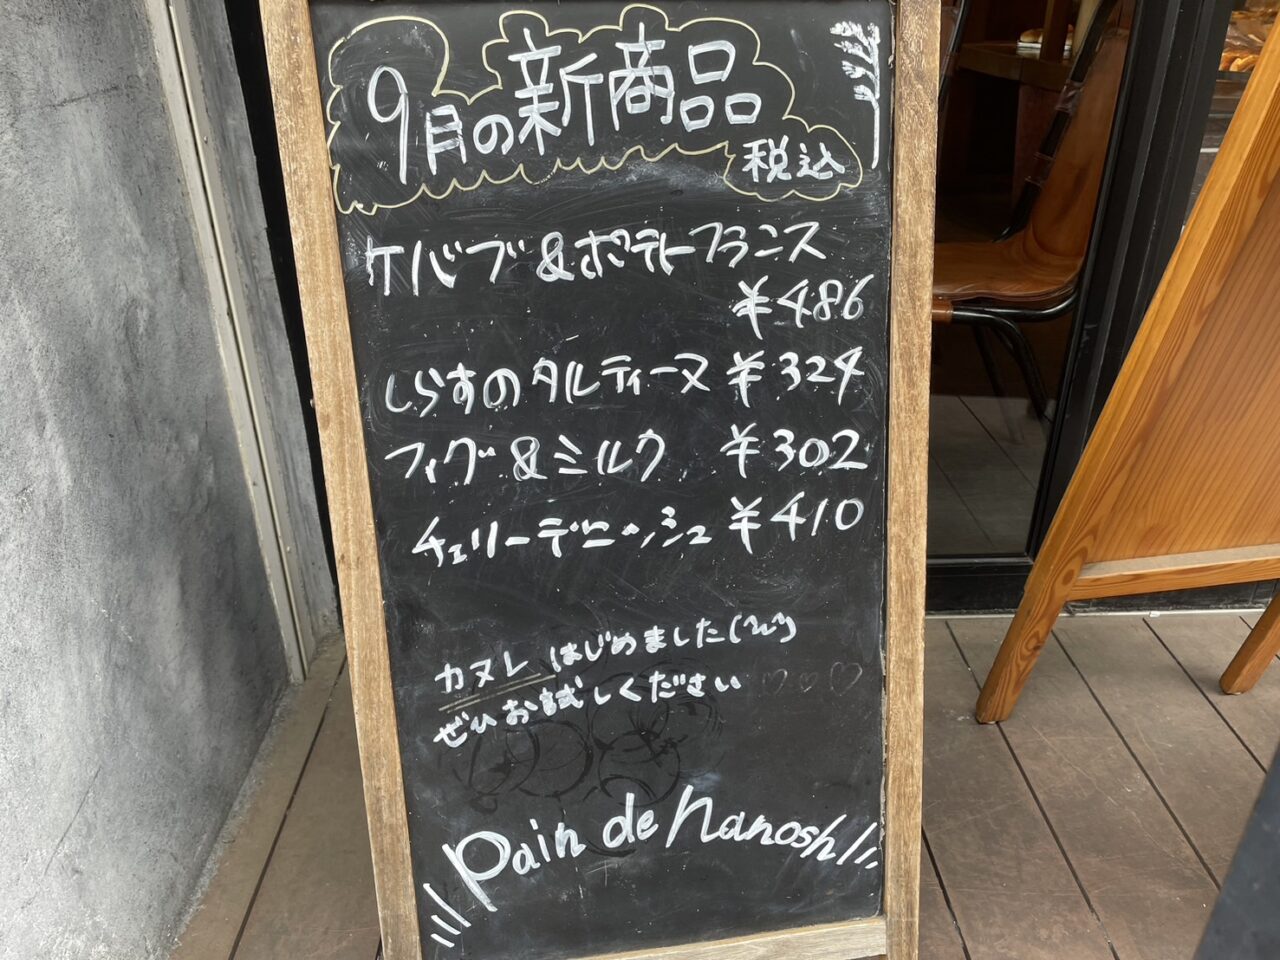 9月の新商品
税込
ケバブ&ポテトフランス
¥486
しらすのタルティーヌ ¥324
フィグ&ミルク ¥302
チェリーデニッシュ ¥410
カヌレ はじめました
ぜひお試しください ♡♡♡
Pain de nanosh